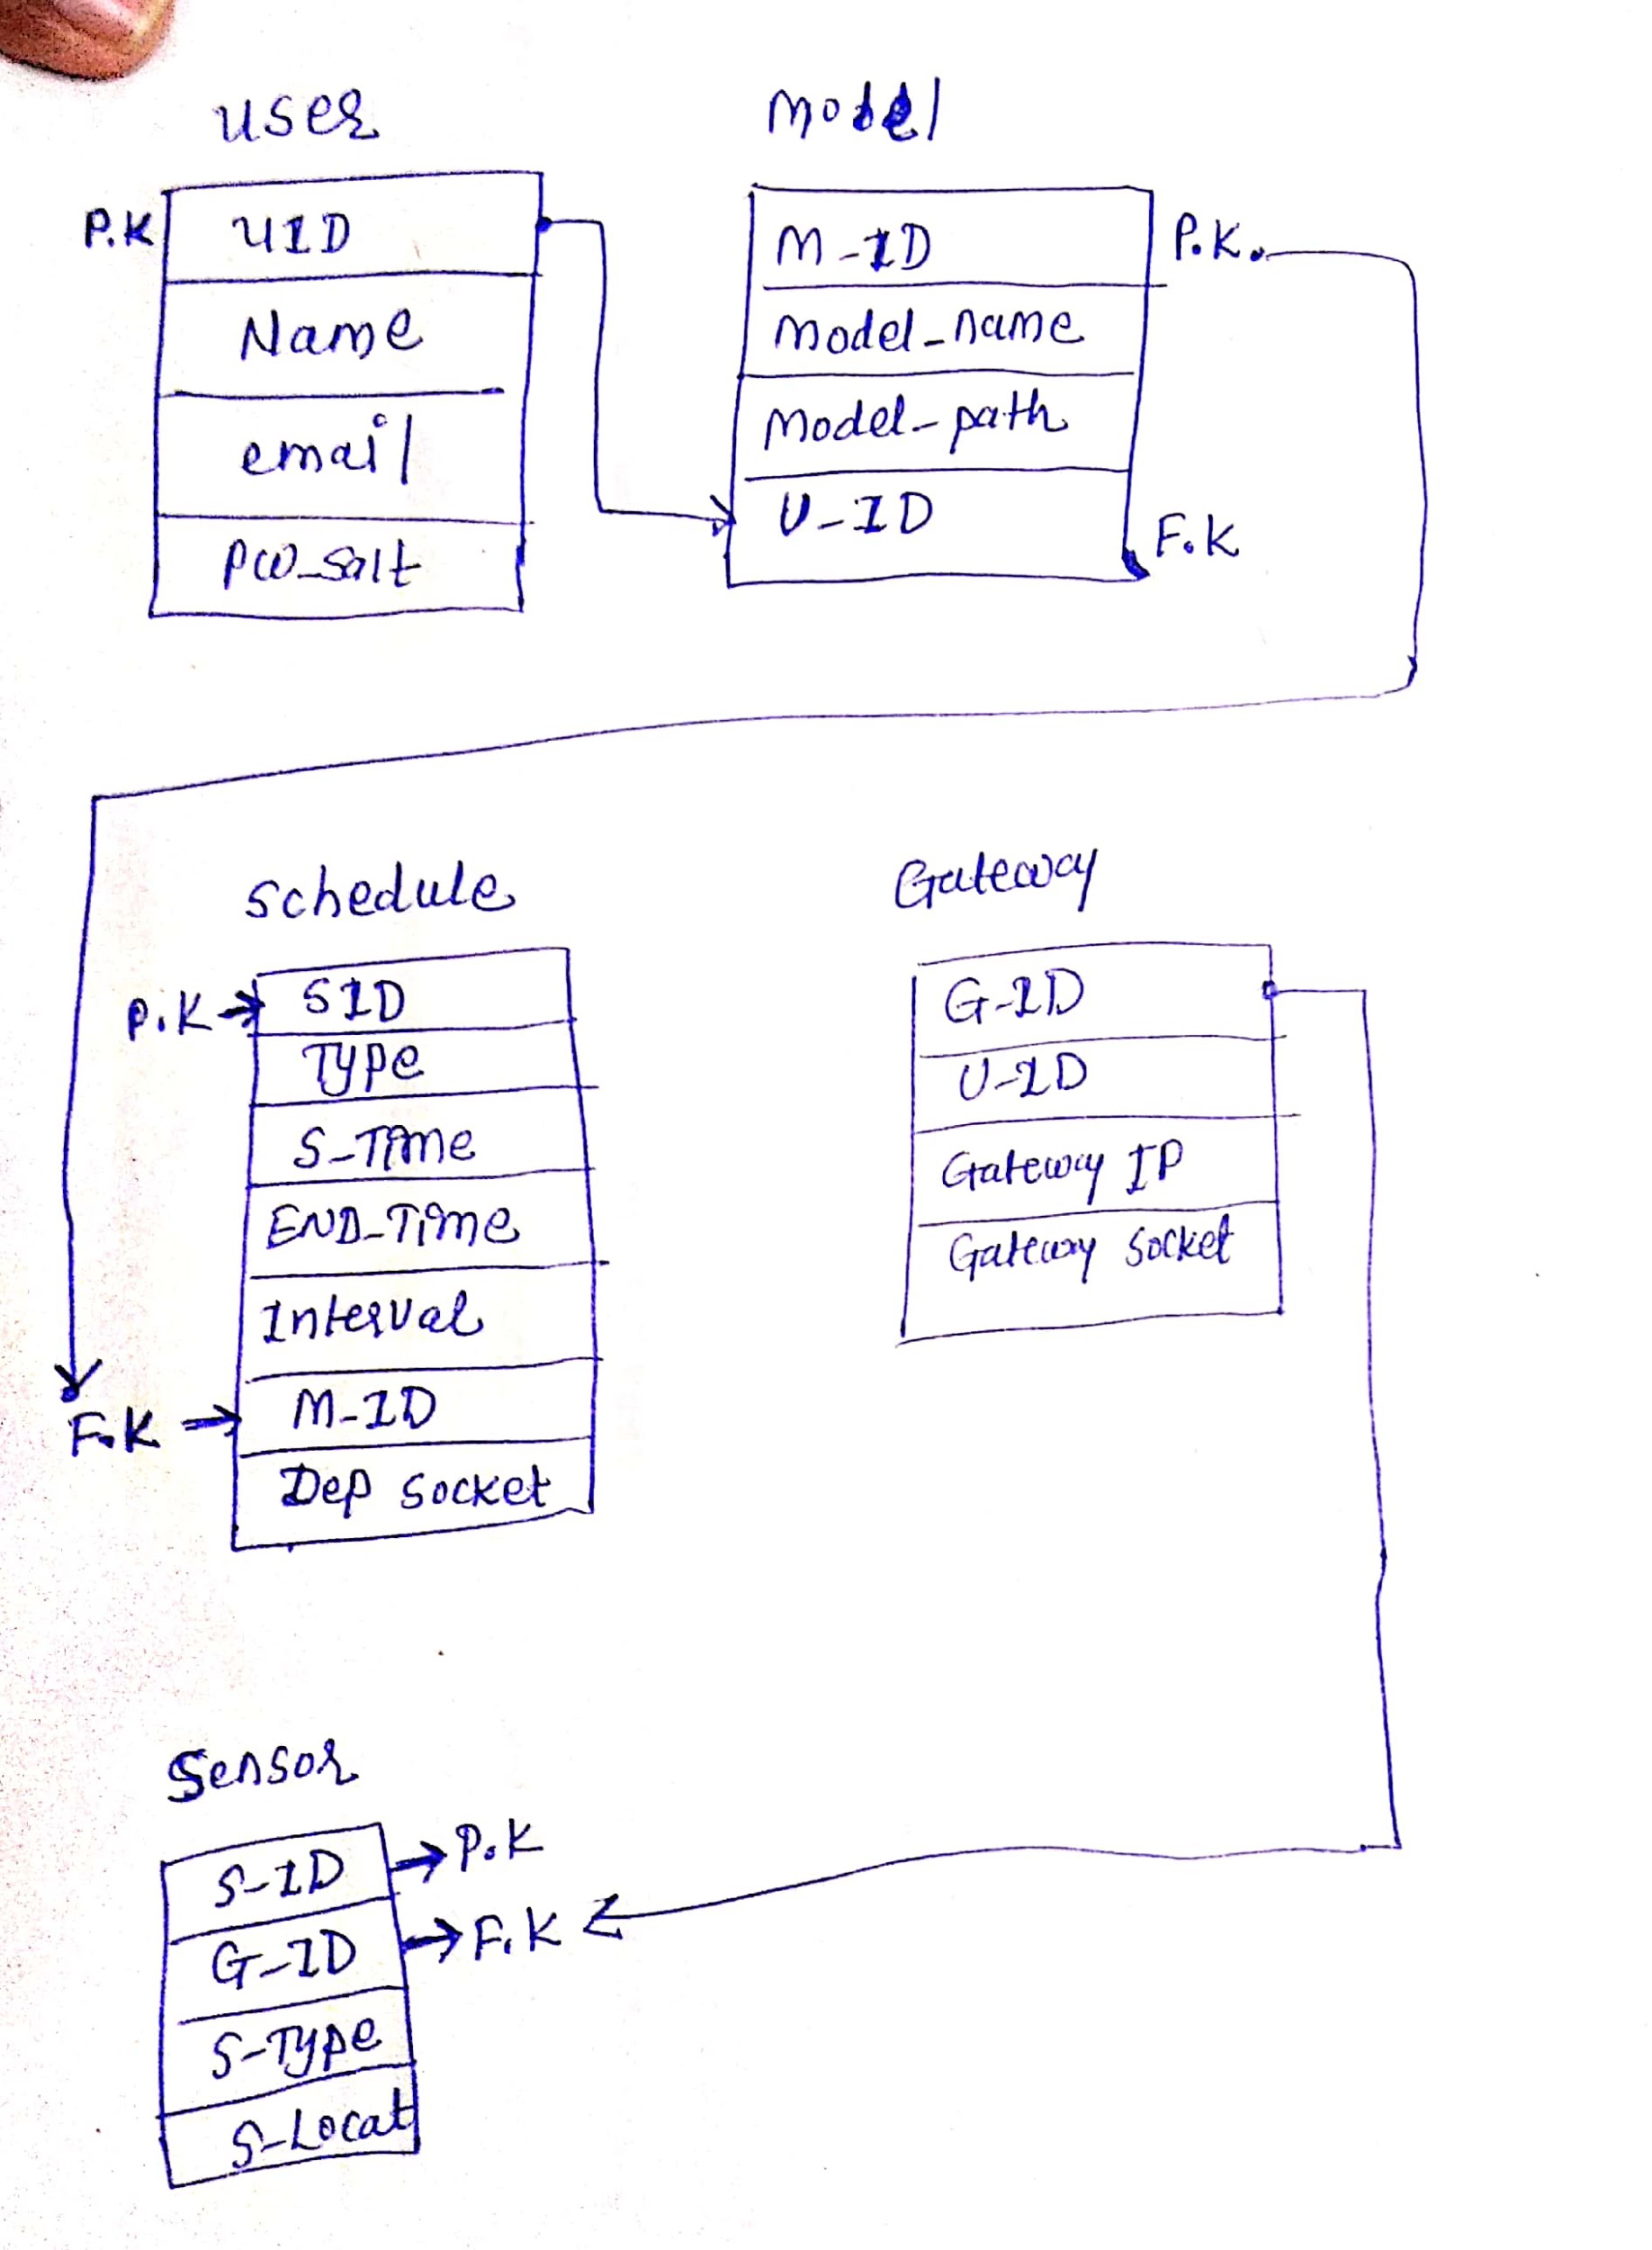 User
P.K UID
Name
email
PW_Salt
Model
M-ID P.K.
Model-name
Model-path
U-ID
F.K
Schedule
P.K → SID
Type
S-Time
END-Time
Interval
F.K → M-ID
Dep socket
Gateway
G-ID
U-ID
Gateway IP
Gateway socket
Sensor
S-ID → P.K
G-ID → F.K
S-Type
S-Locat